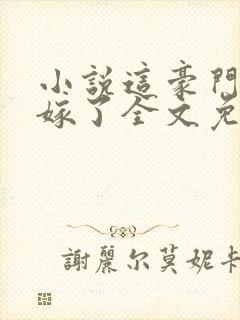 小說這豪門
嫁了全文免
謝麗尔莫妮卡